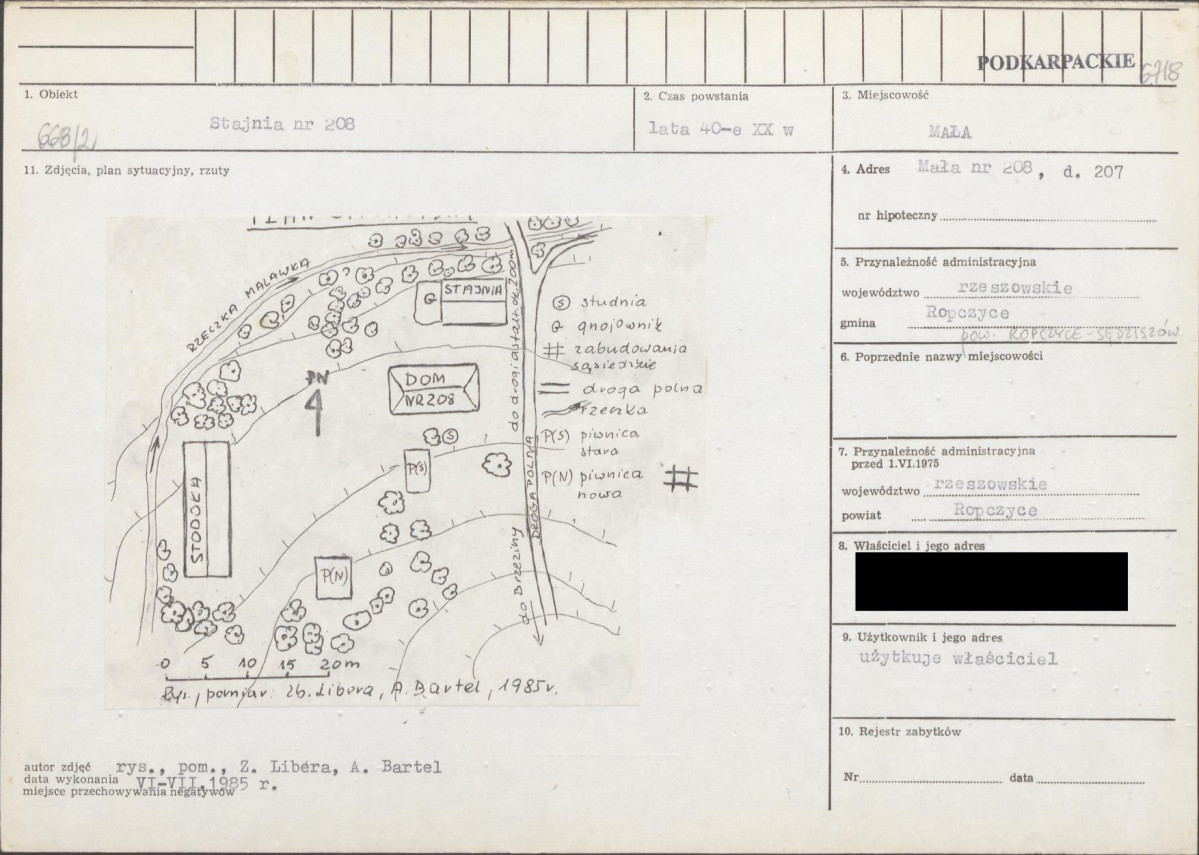 PODKARPACKIE
6718
1. Obiekt
668/2
Stajnia nr 208
2. Czas powstania
lata 40-e XX w
3. Miejscowość
MAŁA
11. Zdjęcia, plan sytuacyjny, rzuty
4. Adres Mała nr 208, d. 207
nr hipoteczny
5. Przynależność administracyjna
województwo rzeszowskie
gmina Ropczyce
pow. ROPCZYCE-SĘDZISZÓW
6. Poprzednie nazwy miejscowości
7. Przynależność administracyjna
przed 1.VI.1975
województwo rzeszowskie
powiat Ropczyce
8. Właściciel i jego adres
9. Użytkownik i jego adres
użytkuje właściciel
10. Rejestr zabytków
Nr data
RZECZKA MALAWKA
G
STAJNIA
PN
DOM
NR 208
S
P(S)
STODOŁA
P(N)
DROGA POLNA
do Brzeziny
S studnia
G gnojownik
# zabudowania
sąsiedzkie
droga polna
rzeczka
P(S) piwnica
stara
P(N) piwnica
nowa
#
0 5 10 15 20m
Rys., pomiar: Zb. Libera, A. Bartel, 1985r.
autor zdjęć rys., pom., Z. Libera, A. Bartel
data wykonania VI-VII.1985 r.
miejsce przechowywania negatywów